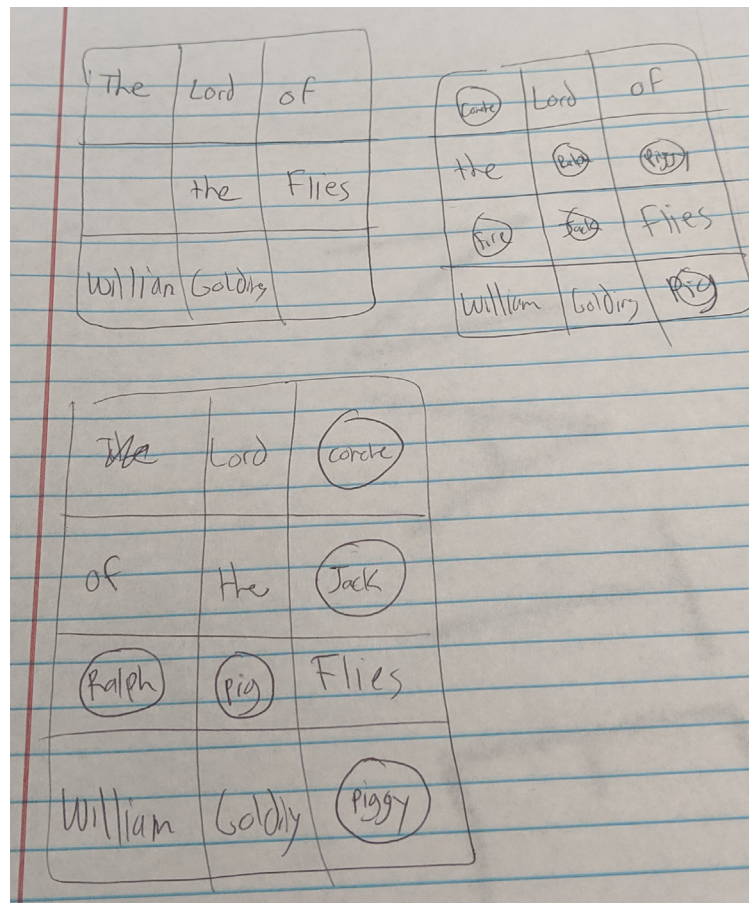 The Lord of
the Flies
Willian Golding
Conch Lord of
the Ralph Piggy
Fire Jack Flies
William Golding Pig
The Lord Conch
of the Jack
Ralph Pig Flies
William Goldily Piggy